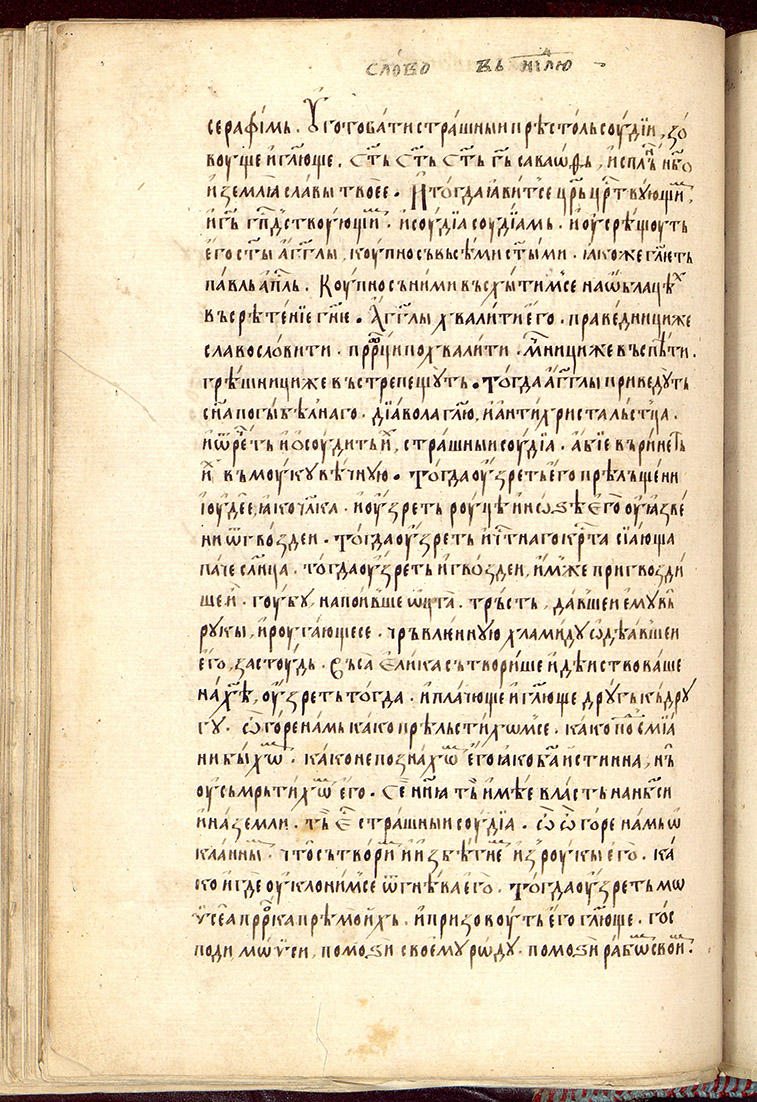 сло́во въ нⷣлю
серафі́мь. Оу҆готова́ти стра́шныи прѣ́столь соудїи, зо
воуще и҆ гл҃юще. ст҃ь ст҃ь ст҃ь гь҃ саваѡ́ѳь, и҆спль́нь нб҃о
и҆ землꙗ сла́вы твоее. И҆ тогда ꙗ҆ви́тсе цр҃ь црⷭ҇твꙋющи́ⷨ,
и҆ гь҃ гпⷭ҇дствоующи́ⷨ. и҆ соудїа соудїамь. и҆ оу҆срѣ́щоуть
его ст҃ы а҆гг҃лы, коупно сь вьсѣ́ми ст҃ы́ми. ꙗ҆коже гл҃еть
па́вль ап҃ль. Коупно сь ни́ми вьсхы́тимсе на ѡ҆́блацѣⷯ
вь срѣ́тенїе гн҃їе. А҆гг҃лы хвали́ти его. пра́ведници же
славосло́вити. прⷪ҇рци похвали́ти. мч҃ници же вьспѣ́ти.
грѣ́шници же вьстрепещꙋть. Тогда а҆гг҃лы приведꙋть
сн҃а погы́бѣлнаго. дїа́вола гл҃ю, и҆ а҆нтихриста льстца.
и҆ ѿре́ть и҆ ѡ҆соудить и҆̀, стра́шныи соудїа. а҆бїе вьри́неть
и҆̀ вь моукꙋ вѣ́чнꙋю. Тогда оу҆зреть его прѣльще́ни
їоуде́е, ꙗ҆ко чл҃ка. и҆ оу҆́зреть роуцѣ́ и҆ но́ꙁѣ его оу҆ꙗзве́
ни ѿ гво́здеи. Тогда оу҆́зреть и҆́стнаго крⷭ҇та сїа́юща
па́че сл҃нца. тогда оу҆зреть и҆ гво́здеи, и҆́мже пригвозди́
ше и҆̀. гоубꙋ, напои́вше ѡ҆цта. трь́сть, да́вшеи е҆мꙋ вь
рꙋкы, и҆ роуга́ющесе. чрьвлен́нꙋю хлами́дꙋ ѡ҆дѣ́авшеи
его, за стоу́дь. Вьса ели́ка сьтвори́ше и҆ дѣи́ствова́ше
на хⷭ҇ѣ, оу҆зреть тогда. и҆ пла́чюще и҆ гл҃юще дрꙋ́гь кь дрꙋ
гꙋ. ѽ го́ре на́мь ка́ко прѣльсти́хѡмсе. ка́ко посмїа́
ни бы́хѡⷨ. ка́ко не позна́хѡⷨ его ꙗ҆ко ба҃ и҆́стинна, нь̀
оу҆сьмрьти́хѡⷨ его. Се нн҃ꙗ ть̀ и҆мѣ́е вла́сть на нбⷭ҇и
и҆ на земли. ть̀ еⷭ҇ стра́шныи соудїа. ѽ ѽ го́ре на́мь ѡ҆
кла́нныⷨ. что̀ сьтвори́ⷨ и҆ и҆збѣ́гнеⷨ и҆з роукы его. ка́
ко и҆ где оу҆клони́мсе ѿ гнѣ́ва его. Тогда оу҆зреть мѡ
ѵсе́а прⷪ҇рка прѣ́мо и҆хь. и҆ призовоуть его гл҃юще. гос
поди, мѡѵси, помоꙁи своемꙋ рѡ́дꙋ. помоꙁи рабѡⷨ своиⷨ.